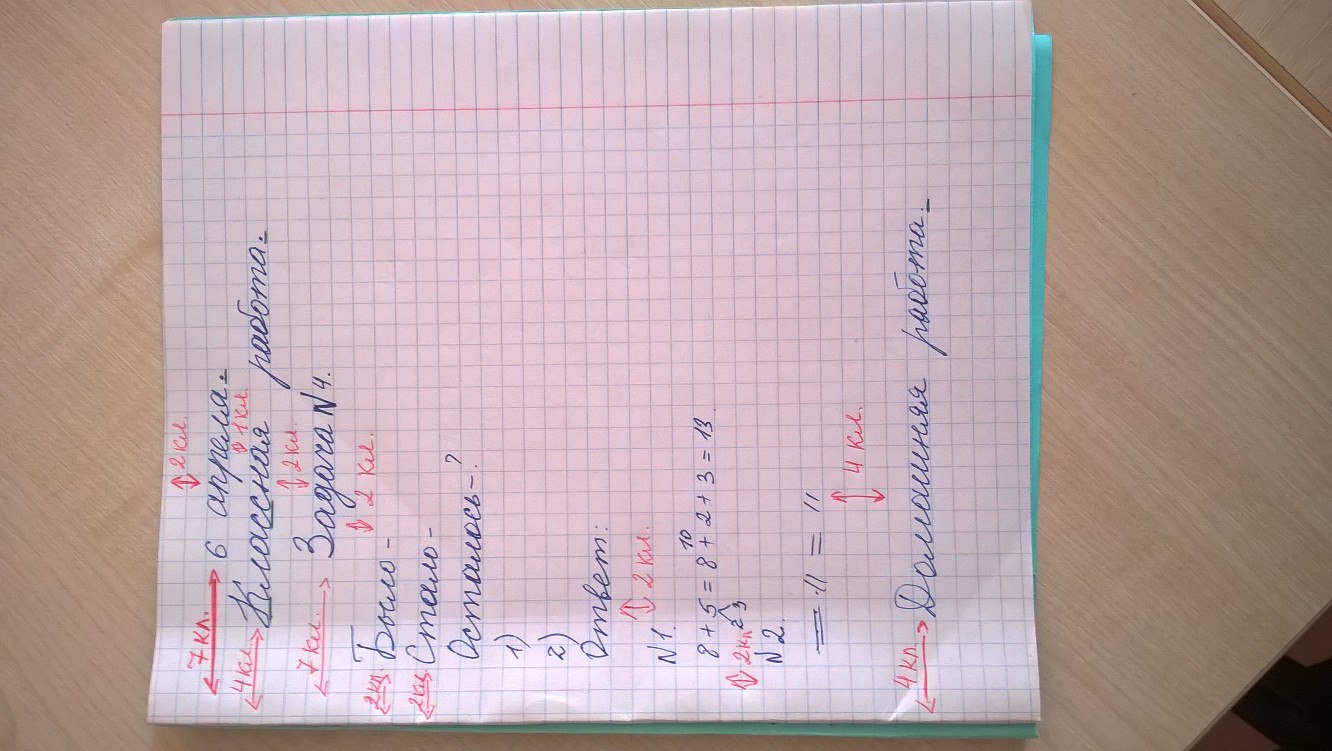 ↕ 2 кл.
7 кл. 6 апреля.
↕ 1 кл.
4 кл. Классная работа.
↕ 2 кл.
7 кл. Задача №4.
↕ 2 кл.
2 кл. Было -
2 кл. Стало -
Осталось - ?
1)
2)
Ответ:
↕ 2 кл.
№1.
10
8 + 5 = 8 + 2 + 3 = 13.
2 3
↕ 2 кл.
№2.
= 11 = 11
↕ 4 кл.
4 кл. Домашняя работа.